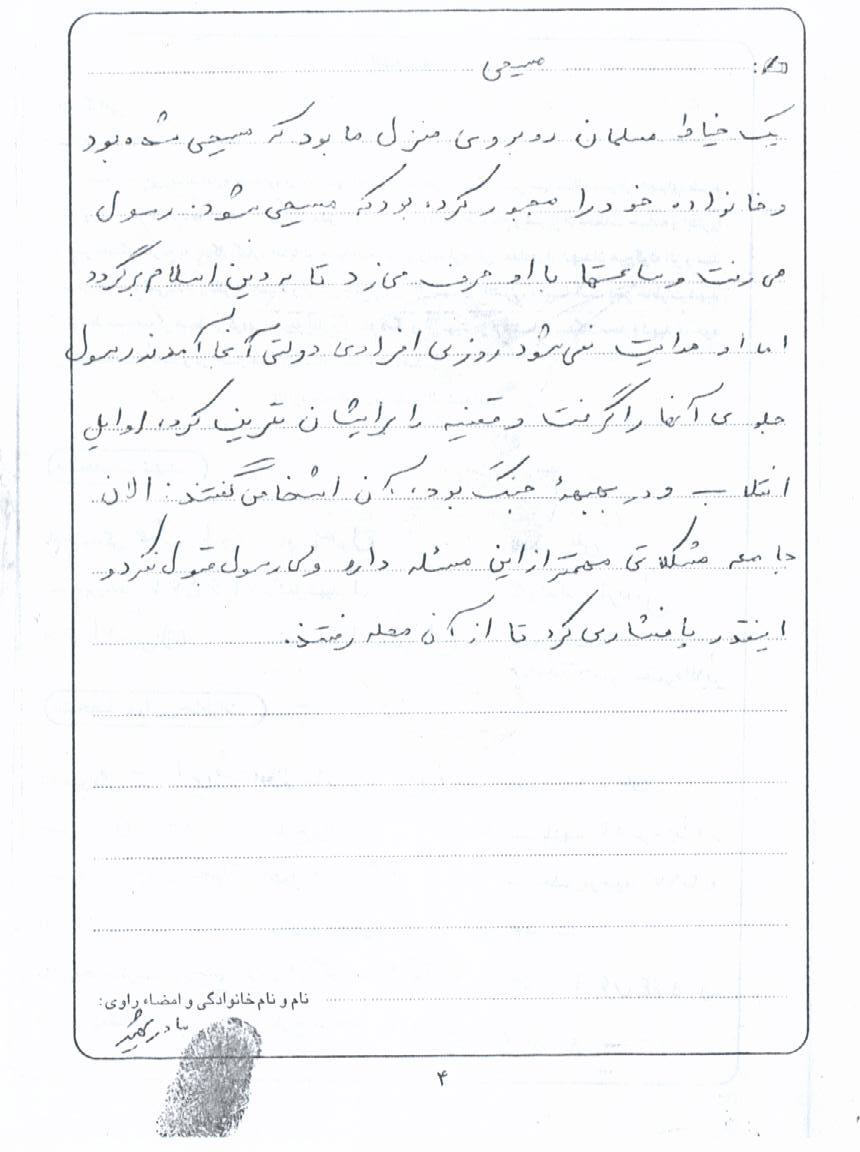 مسیحی
یک خیاط مسلمان روبروی منزل ما بود که مسیحی شده بود
و خانواده خود را مجبور کرده بود که مسیحی شود. رسول
می رفت و ساعتها با او حرف می زد تا به دین اسلام برگردد
اما او هدایت نمی شود روزی افرادی دولتی آنجا آمدند رسول
جلوی آنها را گرفت و قضیه را برایشان تعریف کرد، اوایل
انقلاب و در بحبوحۀ جنگ بود، آن اشخاص گفتند: الان
جامعه مشکلاتی مهمتر از این مسئله دارد ولی رسول قبول نکرد و
اینقدر پافشاری کرد تا از آن محله رفتند.
نام و نام خانوادگی و امضاء راوی:
مادر شهید
۴